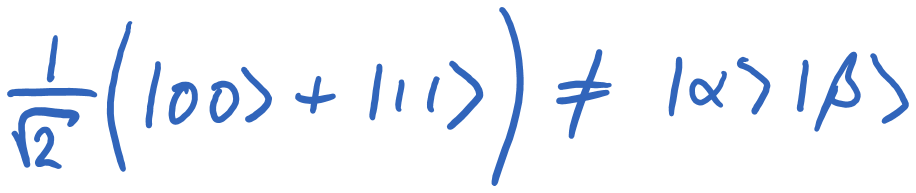 1/√2 (|00⟩ + |11⟩) ≠ |α⟩|β⟩